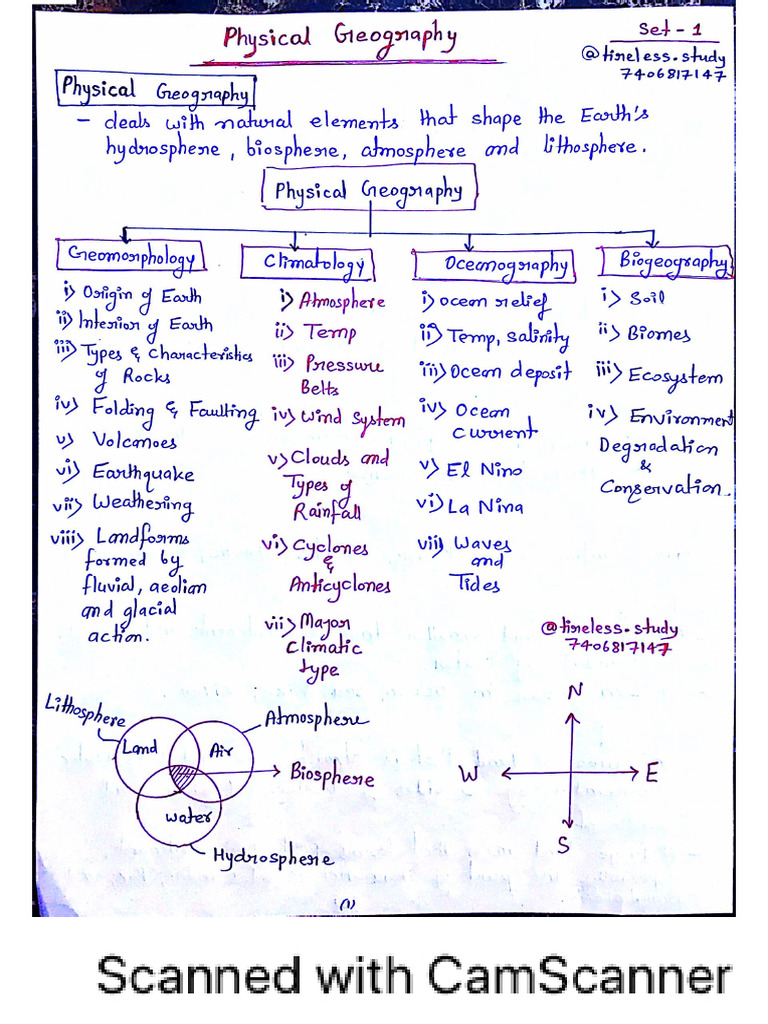 Physical Geography
Set - 1
@tireless.study
7406817147
Physical Geography
- deals with natural elements that shape the Earth's
hydrosphere, biosphere, atmosphere and lithosphere.
Physical Geography
Geomorphology
i) Origin of Earth
ii) Interior of Earth
iii) Types & Characteristics
of Rocks
iv) Folding & Faulting
v) Volcanoes
vi) Earthquake
vii) Weathering
viii) Landforms
formed by
fluvial, aeolian
and glacial
action.
Climatology
i) Atmosphere
ii) Temp
iii) Pressure
Belts
iv) Wind System
v) Clouds and
Types of
Rainfall
vi) Cyclones
&
Anticyclones
vii) Major
Climatic
type
Oceanography
i) ocean relief
ii) Temp, salinity
iii) Ocean deposit
iv) Ocean
Current
v) El Nino
vi) La Nina
vii) Waves
and
Tides
Biogeography
i) Soil
ii) Biomes
iii) Ecosystem
iv) Environment
Degradation
&
Conservation.
@tireless.study
7406817147
Lithosphere
Land
Air
Atmosphere
Biosphere
Water
Hydrosphere
N
W
E
S
(1)
Scanned with CamScanner